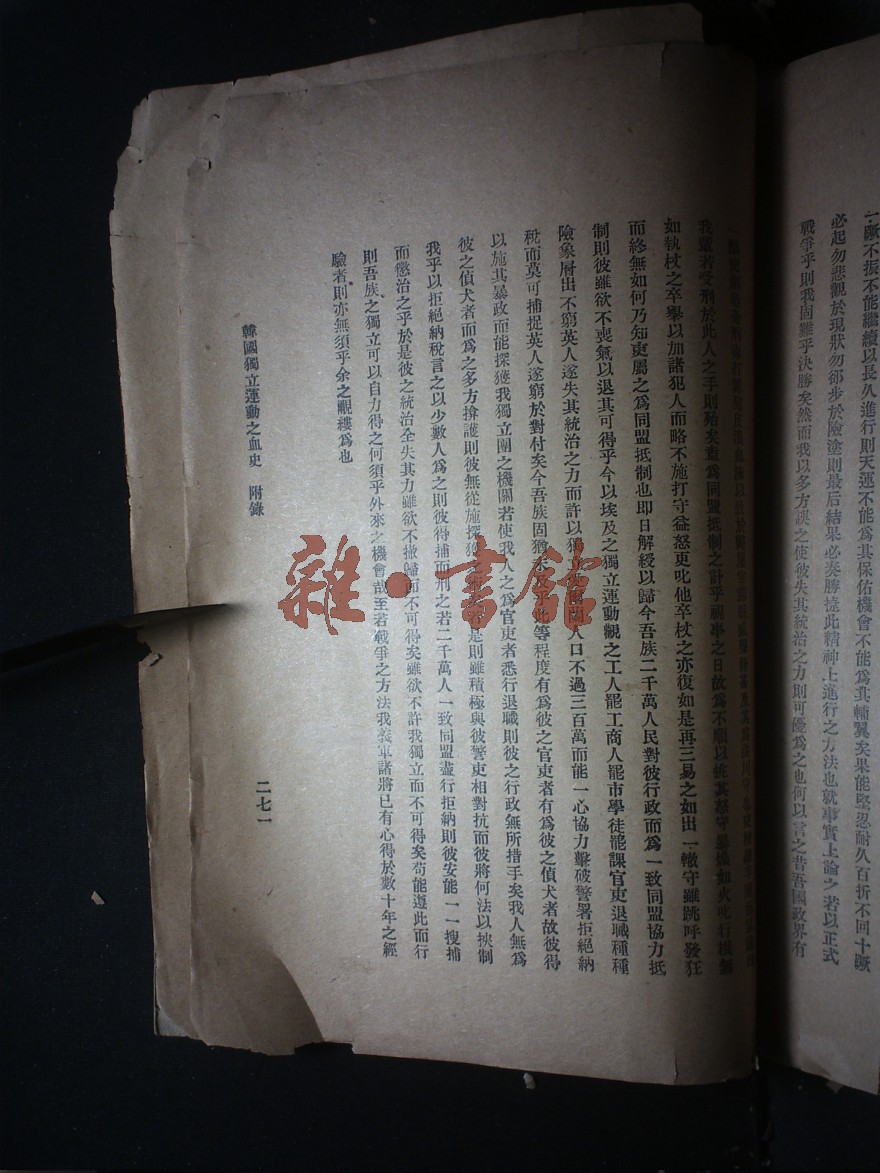 一蹶不振不能繼續以長久進行則天運不能爲其保佑機會不能爲其輔翼矣果能堅忍耐久百折不回十蹶
必起勿悲觀於現狀勿却步於險塗則最后結果必奏勝捷此精神上進行之方法也就事實上論之若以正式
戰爭乎則我固難乎決勝矣然而我以多方誤之使彼失其統治之力則可優爲之也何以言之昔吾國政界有
我輩若受刑於此人之手則殆矣重爲同盟抵制之計乎視事之日故爲不順以
如執杖之卒舉以加諸犯人而略不施打守益怒更叱他卒杖之亦復如是再三易之如出一轍守雖跳呼發狂
而終無如何乃知吏屬之爲同盟抵制也即日解綬以歸今吾族二千萬人民對彼行政而爲一致同盟協力抵
制則彼雖欲不喪氣以退其可得乎今以埃及之獨立運動觀之工人罷工商人罷市學徒罷課官吏退職種種
險象層出不窮英人遂失其統治之力而許以獨立 人口不過三百萬而能一心協力擊破警署拒絕納
稅而莫可捕捉英人遂窮於對付矣今吾族固猶未及乎此等程度有爲彼之官吏者有爲彼之偵犬者故彼得
以施其暴政而能探獲我獨立團之機關若使我人之爲官吏者悉行退職則彼之行政無所措手矣我人無爲
彼之偵犬者而爲之多方揜護則彼無從施探獲 是則雖積極與彼警吏相對抗而彼將何法以挾制
我乎以拒絕納稅言之以少數人爲之則彼得捕而刑之若二千萬人一致同盟盡行拒納則彼安能一一搜捕
而懲治之乎於是彼之統治全失其力雖欲不撤歸而不可得矣雖欲不許我獨立而不可得矣苟能遵此而行
則吾族之獨立可以自力得之何須乎外來之機會哉至若戰爭之方法我義軍諸將已有心得於數十年之經
驗者則亦無須乎余之覼縷爲也
韓國獨立運動之血史 附錄
二七一
雜·書館